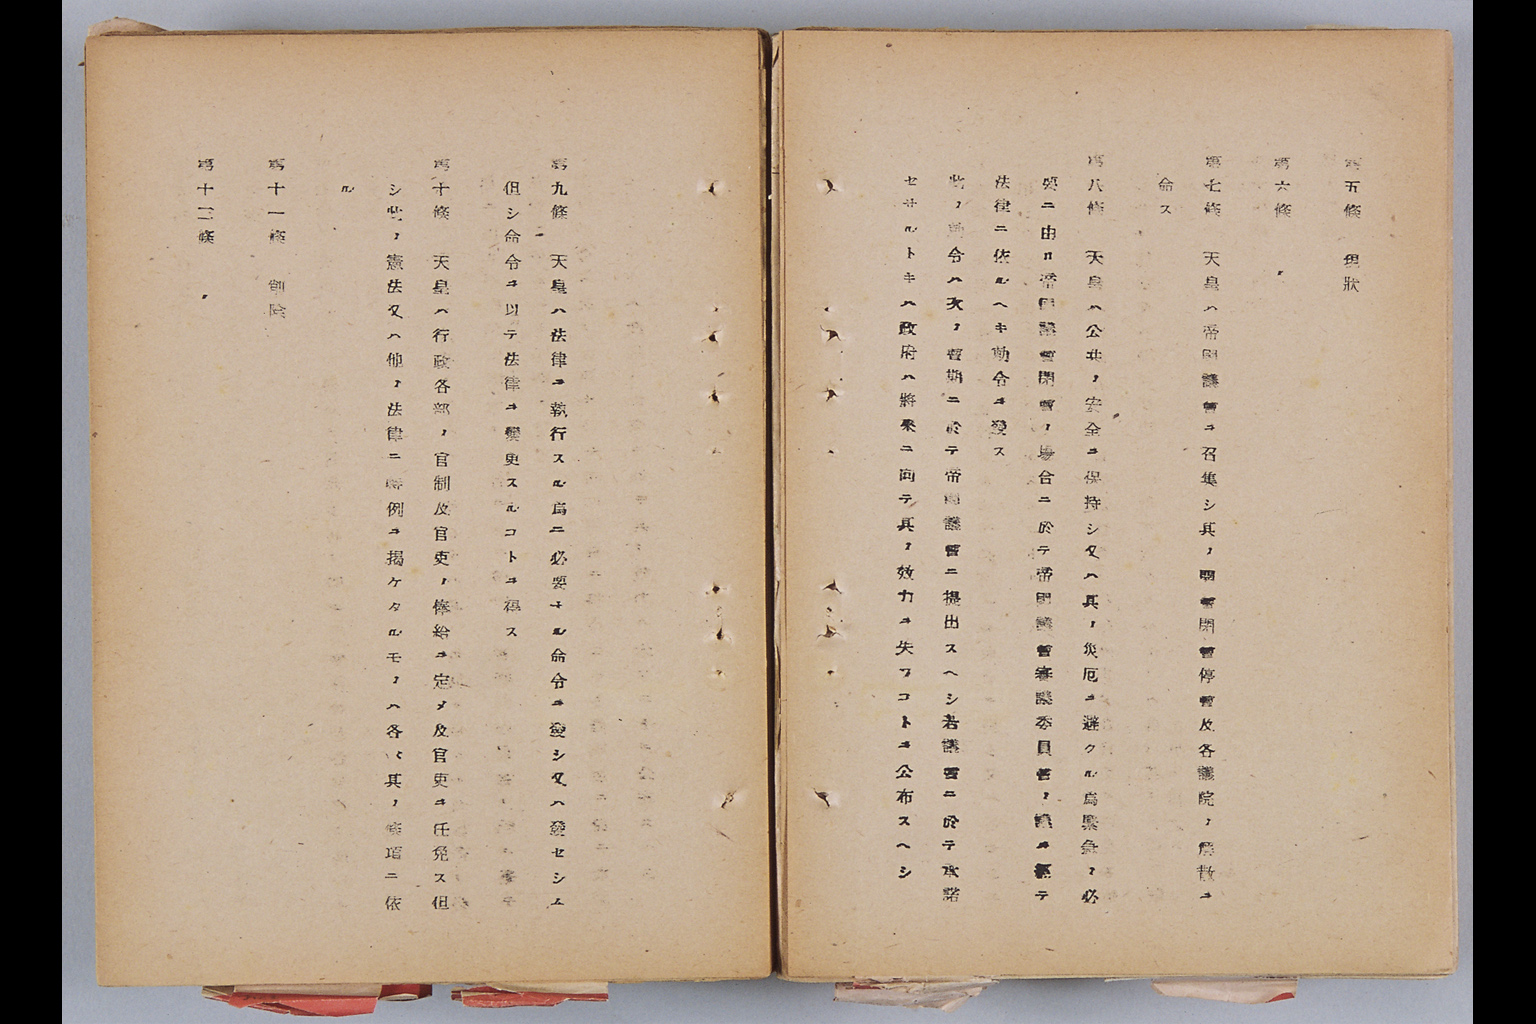 第五條　現狀
第六條　〃
第七條　天皇ハ帝国議會ヲ召集シ其ノ開會閉會停會及各議院ノ解散ヲ
命ス
第八條　天皇ハ公共ノ安全ヲ保持シ又ハ其ノ災厄ヲ避クル爲緊急ノ必
要ニ由リ帝国議會閉會ノ場合ニ於テ帝国議會審議委員會ノ議ヲ經テ
法律ニ依ルヘキ勅令ヲ發ス
此ノ勅令ハ次ノ會期ニ於テ帝国議會ニ提出スヘシ若議會ニ於テ承諾
セサルトキハ政府ハ將來ニ向テ其ノ效力ヲ失フコトヲ公布スヘシ
第九條　天皇ハ法律ヲ執行スル爲ニ必要ナル命令ヲ發シ又ハ發セシム
但シ命令ヲ以テ法律ヲ變更スルコトヲ得ス
第十條　天皇ハ行政各部ノ官制及官吏ノ俸給ヲ定メ及官吏ヲ任免ス但
シ此ノ憲法又ハ他ノ法律ニ特例ヲ揭ケタルモノハ各〻其ノ條項ニ依
ル
第十一條　削除
第十二條　〃